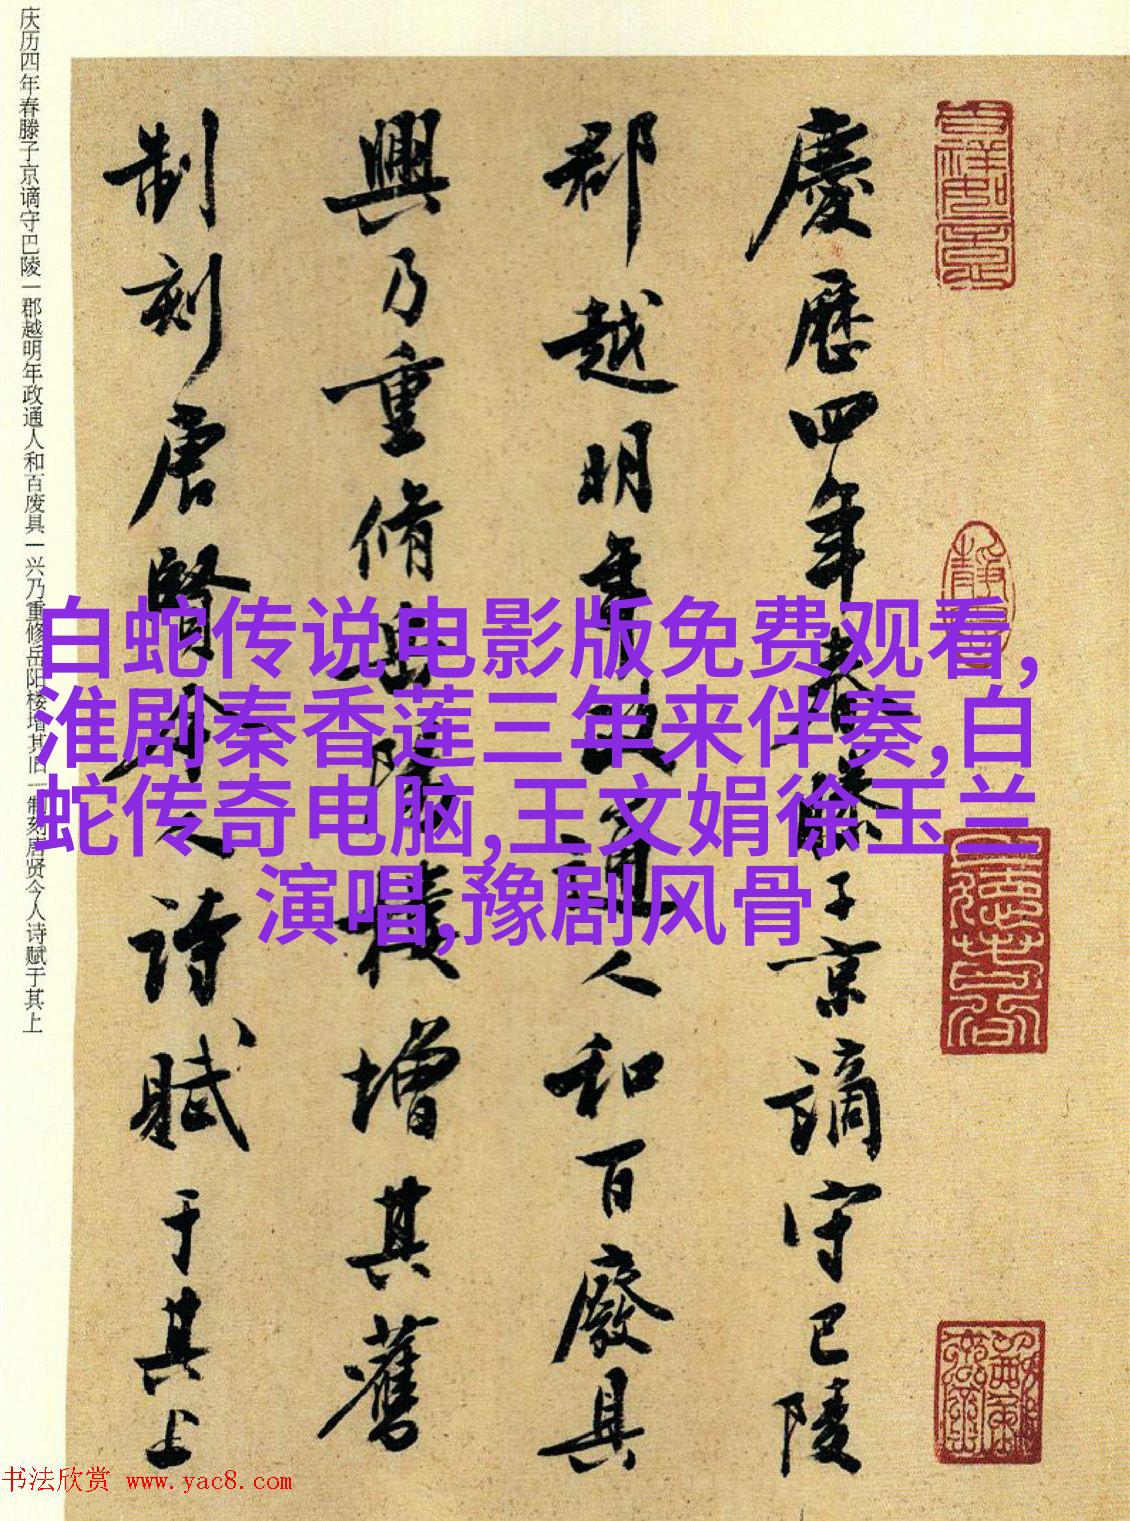 慶歷四年春滕子京謫守巴陵
郡越明年政通人和百廢具
興乃重脩岳陽樓增其舊
制刻唐賢今人詩賦于其上
庆历四年春滕子京谪守巴陵一郡越明年政通人和百废具一兴乃重修岳阳楼增其旧一制刻唐贤今人诗赋于其上
白蛇传说电影版免费观看,
淮剧秦香莲三年来伴奏,白
蛇传奇电脑,王文娟徐玉兰
演唱,豫剧风骨
书法欣赏 www.yac8.com